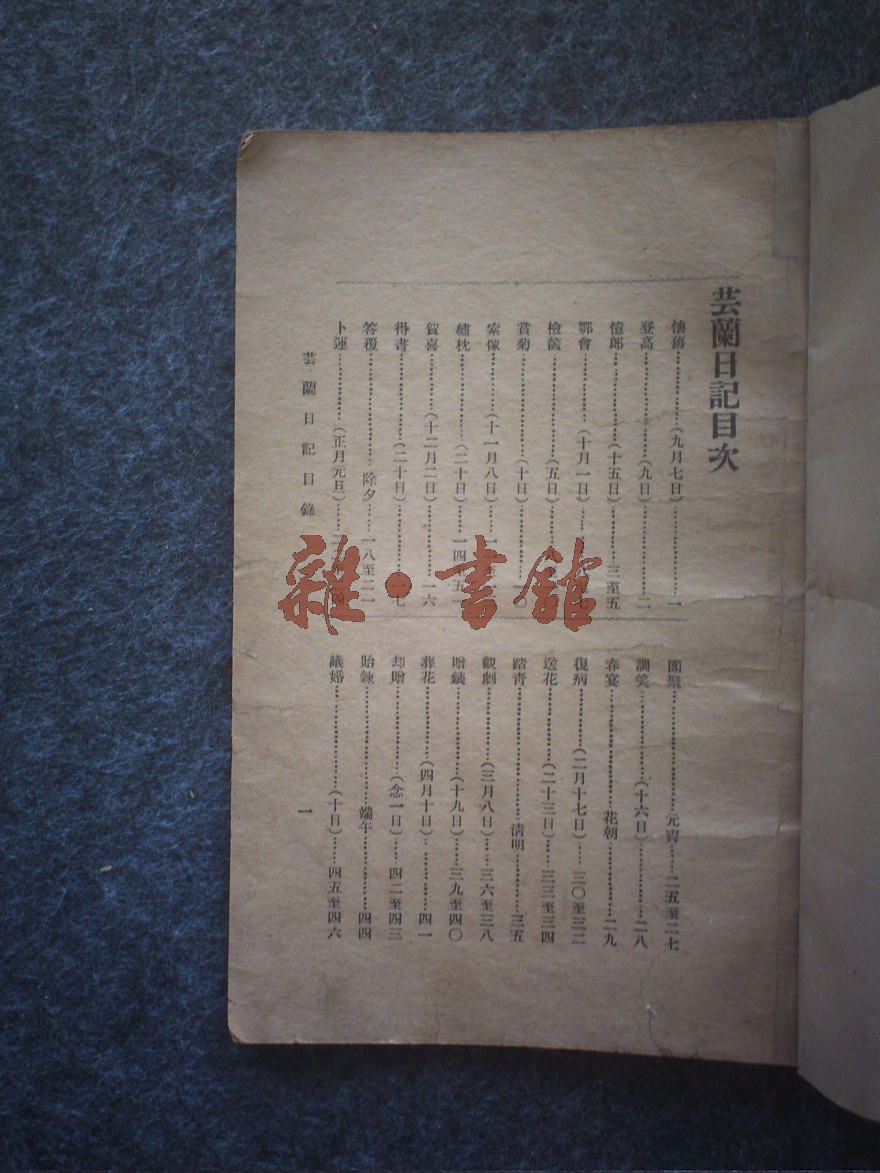 芸蘭日記目次
懷舊…………(九月七日)…………一
登高…………(九日)…………二
憶郎…………(十五日)…………三至五
鄂會…………(十月一日)……七
檢篋…………(五日)……
賞菊…………(十日)…………一〇
索像…………(十一月八日)……一
繡枕…………(二十日)……一四至五一
賀喜…………(十二月二日)……一六
得書…………(二十日)…………一七
答覆…………除夕……一八至二一
卜運…………(正月元旦)……
團聚…………元宵……二五至二七
調笑…………(十六日)……二八
春宴…………花朝…………二九
復病…………(二月十七日)……三〇至三二
送花…………(二十三日)……三三至三四
踏青…………清明…………三五
觀劇…………(三月八日)……三六至三八
贈鏡…………(十九日)……三九至四〇
葬花…………(四月十日)……四一
却贈…………(念一日)……四二至四三
貽鍊…………端午…………四四
議婚…………(十日)……四五至四六
芸蘭日記目錄
一
雜·書館